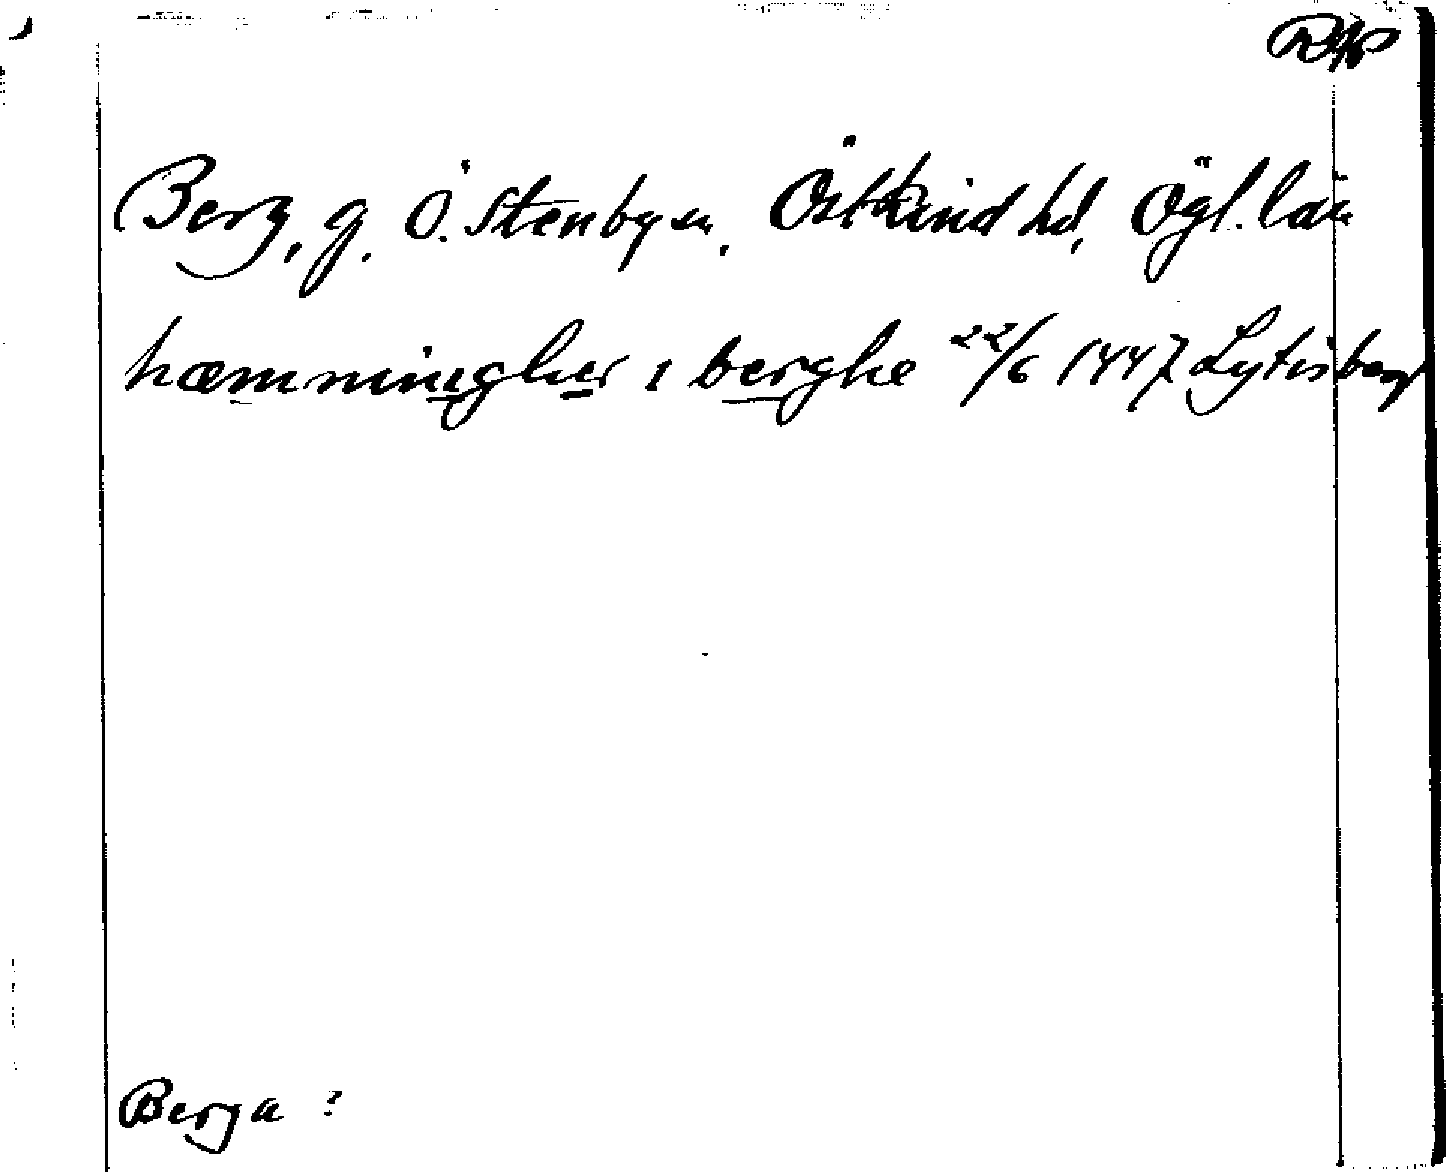 Berg, g. Ö. Stenby sn, Östkind hd, Ögl. län
hæmmingher i berghe 22/6 1447 Lytisberg
Berga ?